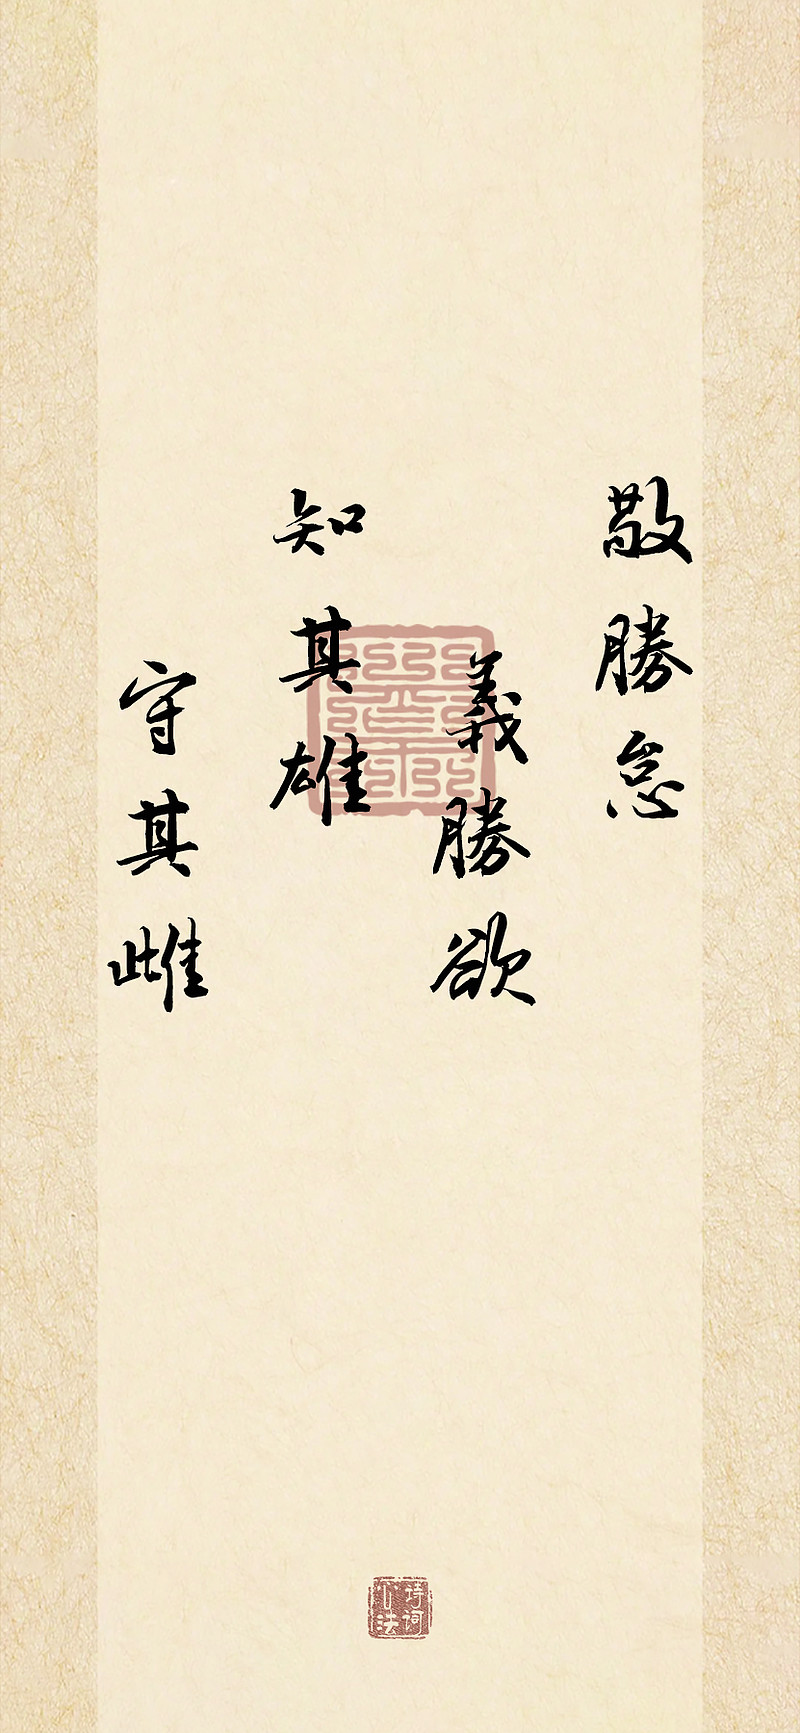 敬勝怠
義勝欲
知其雄
守其雌
诗词
心法